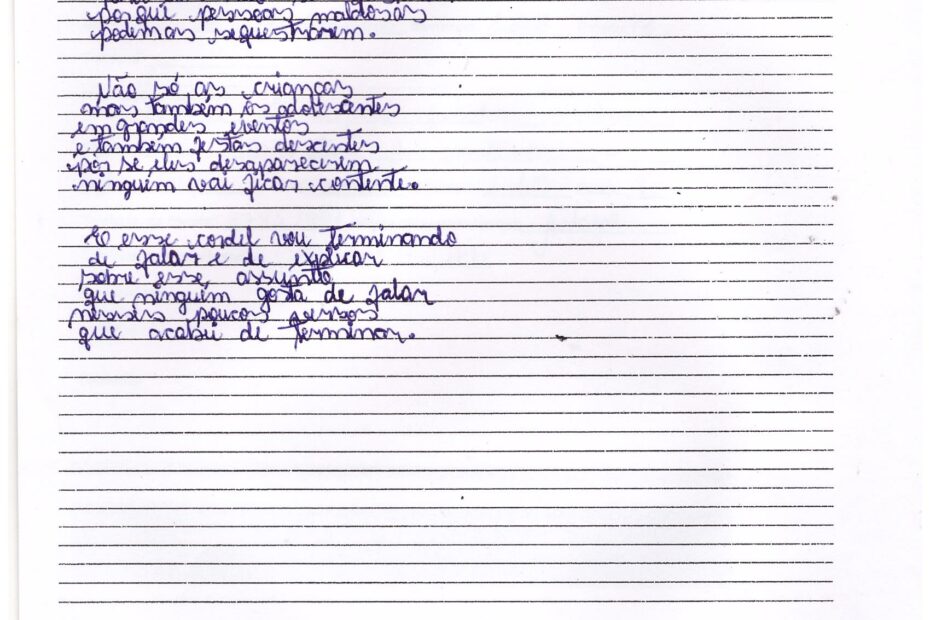 porque pessoas maldosas
podemos sequestrarem.
Não só as crianças
mas também os adolescentes
em grandes eventos
e também festas descentes
pois se eles desaparecerem
ninguém vai ficar contente.
E esse cordel vou terminando
de falar e de explicar
sobre esse assunto
que ninguém gosta de falar
nesses poucos versos
que acabei de terminar.